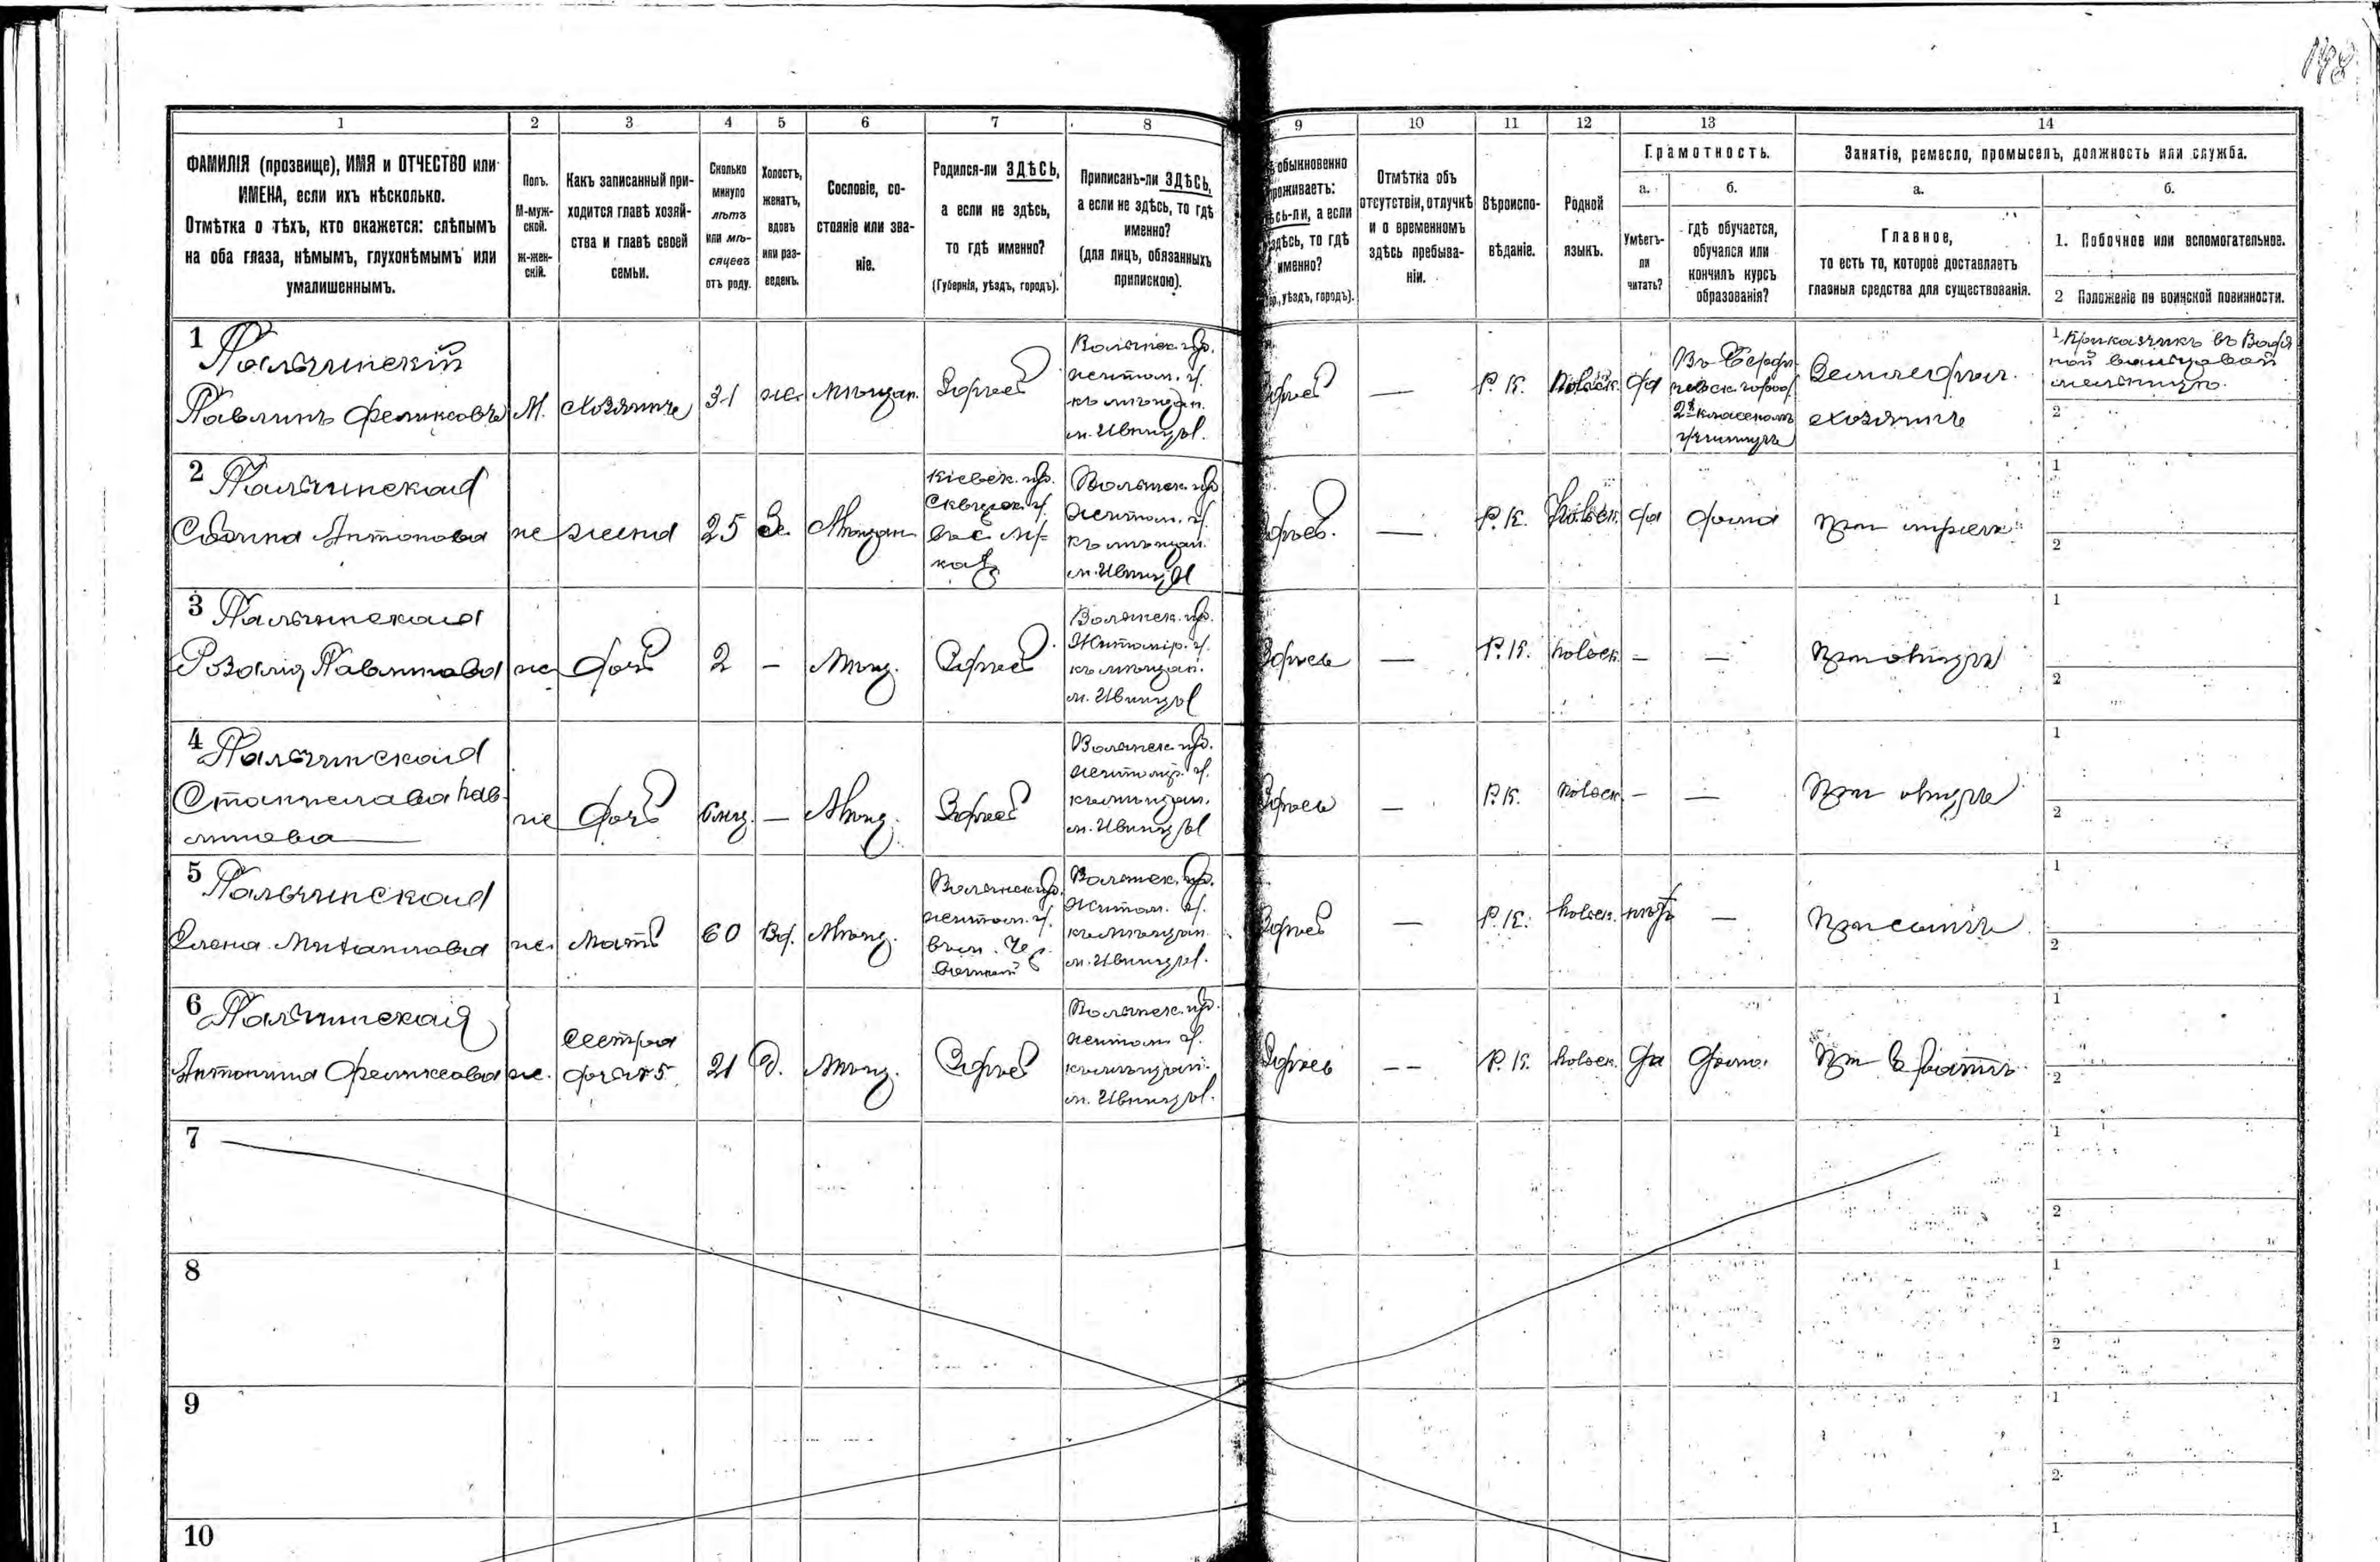 198
1 2 3 4 5 6 7 8 9 10 11 12 13 14
ФАМИЛІЯ (прозвище), ИМЯ и ОТЧЕСТВО или
ИМЕНА, если ихъ нѣсколько.
Отмѣтка о тѣхъ, кто окажется: слѣпымъ
на оба глаза, нѣмымъ, глухонѣмымъ или
умалишеннымъ.
Полъ.
М-муж-
ской.
ж-жен-
скій.
Какъ записанный при-
ходится главѣ хозяй-
ства и главѣ своей
семьи.
Сколько
минуло
лѣтъ
или мѣ-
сяцевъ
отъ роду.
Холостъ,
женатъ,
вдовъ
или раз-
веденъ.
Сословіе, со-
стояніе или зва-
ніе.
Родился-ли ЗДѢСЬ,
а если не здѣсь,
то гдѣ именно?
(Губернія, уѣздъ, городъ).
Приписанъ-ли ЗДѢСЬ,
а если не здѣсь, то гдѣ
именно?
(для лицъ, обязанныхъ
припискою).
обыкновенно
проживаетъ:
здѣсь-ли, а если
здѣсь, то гдѣ
именно?
уѣздъ, городъ).
Отмѣтка объ
отсутствіи, отлучкѣ
и о временномъ
здѣсь пребыва-
ніи.
Вѣроиспо-
вѣданіе.
Родной
языкъ.
Грамотность.
а.
Умѣетъ-
ли
читать?
б.
гдѣ обучается,
обучался или
кончилъ курсъ
образованія?
Занятіе, ремесло, промыселъ, должность или служба.
а.
Главное,
то есть то, которое доставляетъ
главныя средства для существованія.
б.
1. Побочное или вспомогательное.
2 Положеніе по воинской повинности.
1 Пальчинскій
Павлинъ Феликсовъ
М.
Хозяинъ
31
ж.
мѣщан.
Здѣсь
Волынск. губ.
Житом. у.
къ мѣщан.
м. Ивницы.
Здѣсь
—
Р. К.
Польск.
да
2х классномъ
училищѣ
Землед.
Хозяинъ
1 Прикащикъ въ Водя
ной вальцовой
мельницѣ.
2
2 Пальчинская
Сабина Антонова
ж
жена
25
З.
Мѣщан.
Кіевск. губ.
Сквирск. у.
Волынск. губ.
Житом. у.
къ мѣщан.
м. Ивницы
Здѣсь.
—
Р. К.
Польск.
да
дома
при мужѣ
1
2
3 Пальчинская
Розалія Павлинова
ж
дочь
2
—
Мѣщ.
Здѣсь
Волынск. губ.
Житомір. у.
къ мѣщан.
м. Ивницы
Здѣсь
—
Р. К.
польск.
—
—
При отцѣ
1
2
4 Пальчинская
Станислава Пав-
линова
ж
дочь
6 мц.
—
Мѣщ.
Здѣсь
Волынск. губ.
Житомір. у.
къ мѣщан.
м. Ивницы
Здѣсь
—
Р. К.
польск.
—
—
При отцѣ
1
2
5 Пальчинская
Елена Михайлова
ж.
мать
60
Вд.
Мѣщ.
Волынск. губ.
Житом. у.
Волынск. губ.
Житом. у.
къ мѣщан.
м. Ивницы.
Здѣсь
—
Р. К.
польск.
нѣтъ
—
При сынѣ
1
2
6 Пальчинская
Антонина Феликсова
ж.
Сестра
дочь № 5.
21
Д.
Мѣщ.
Здѣсь
Волынск. губ.
Житом. у.
къ мѣщан.
м. Ивницы.
Здѣсь
—
Р. К.
польск.
да
дома.
При братѣ
1
2
7
1
2
8
1
2
9
1
2
10
1